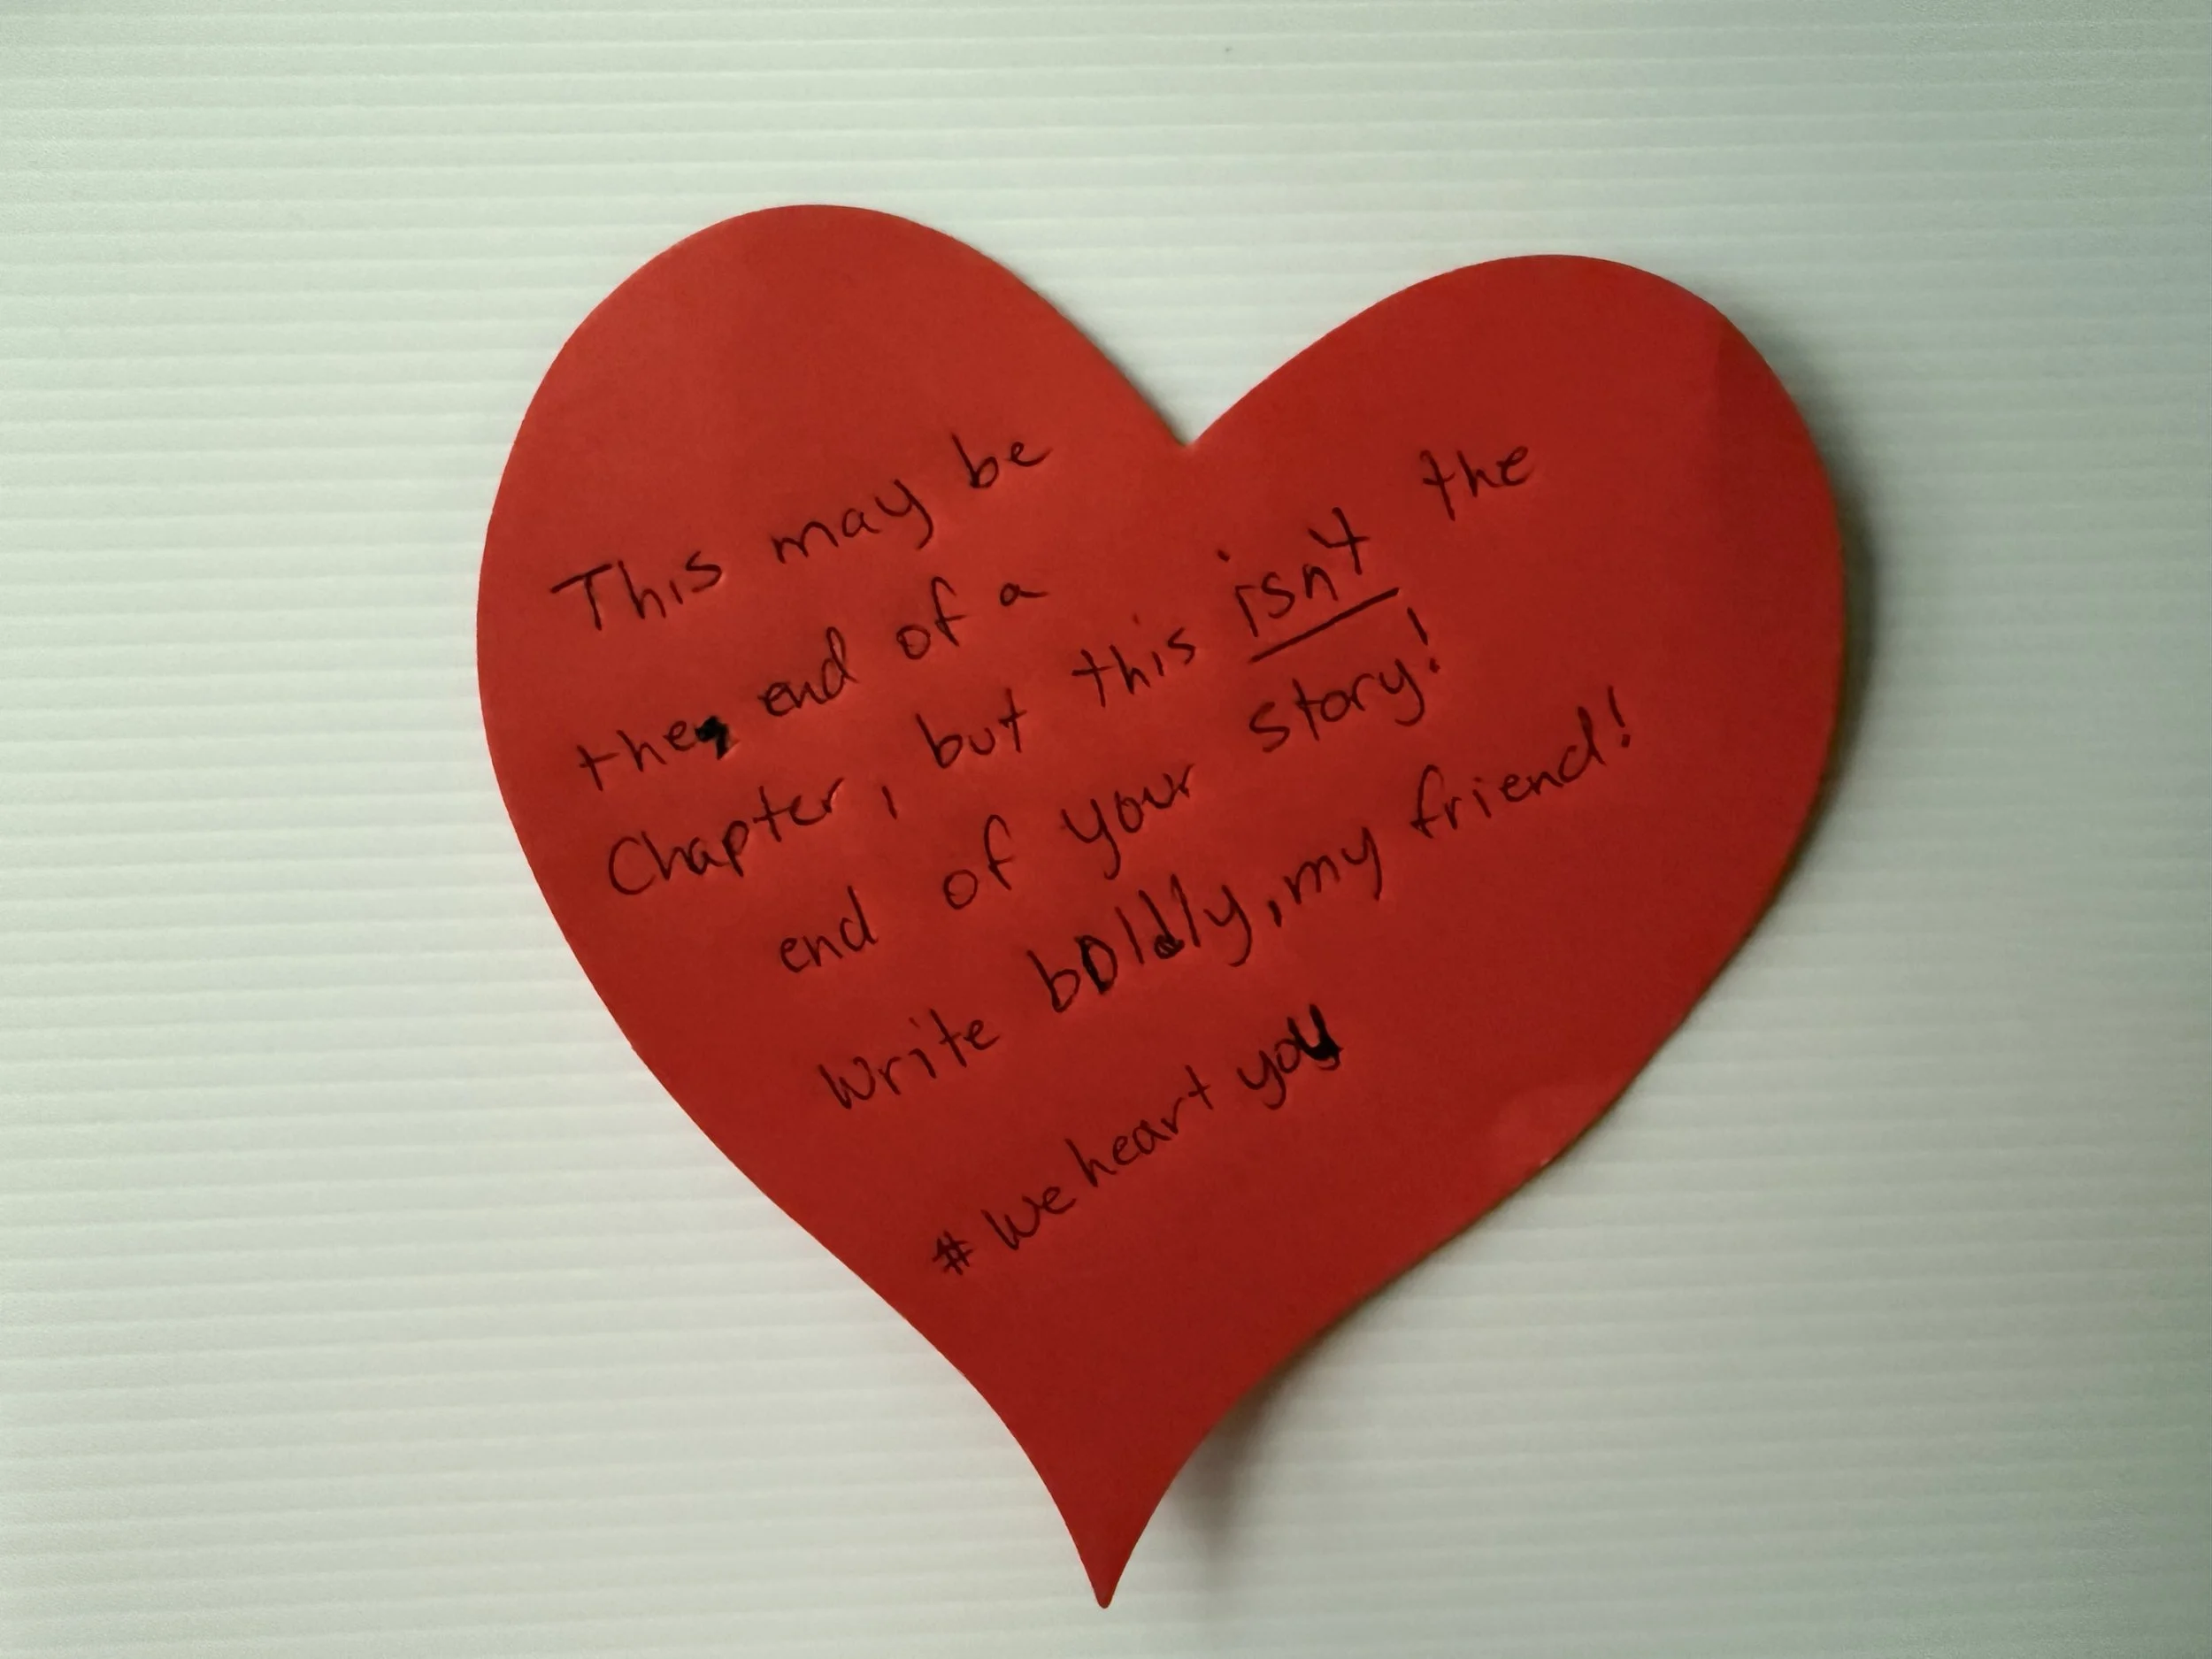 This may be
the end of a
Chapter, but this isn't the
end of your story!
Write boldly, my friend!
# We heart you